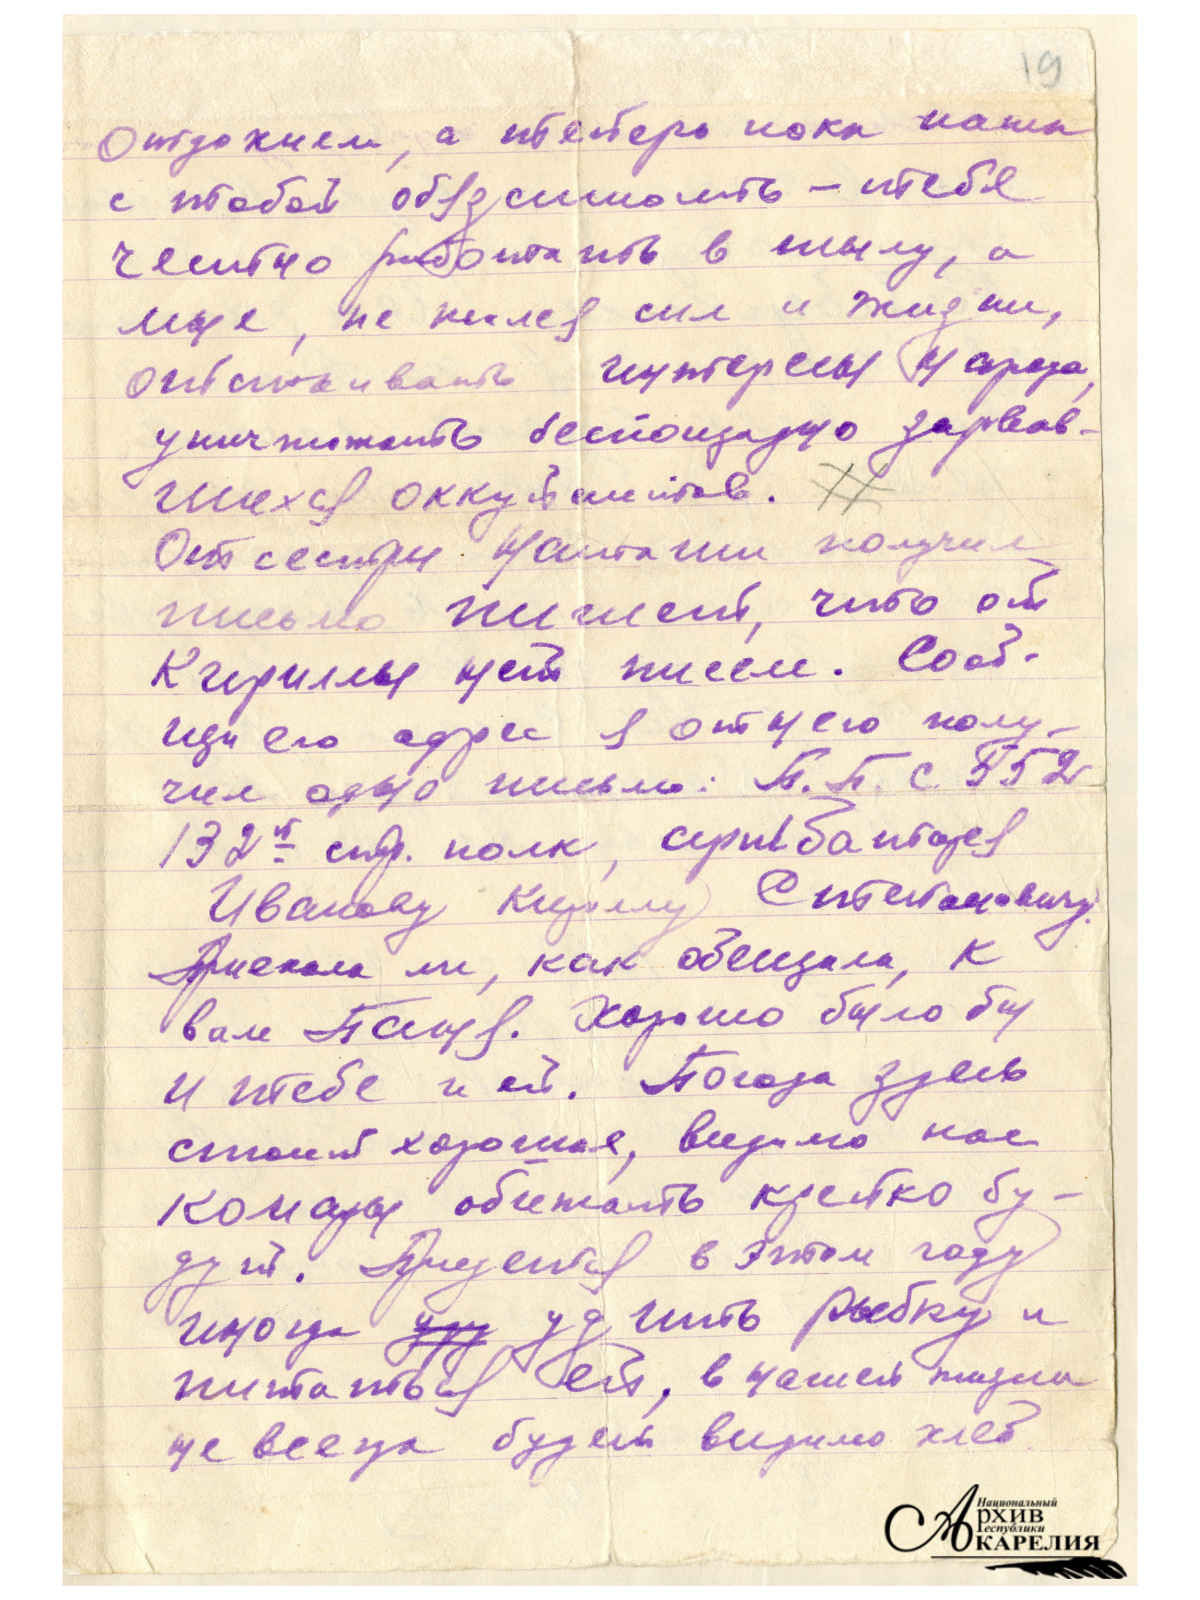 19
Отдохнем, а теперь пока наша
с тобой обязанность – тебя
честно работать в тылу, а
мне, не жалея сил и жизни,
отстаивать интересы народа,
уничтожать беспощадно зарвав-
шихся оккупантов.
От сестры Наташи получил
письмо пишет, что от
Кириллы нет писем. Сооб-
щи его адрес я от него полу-
чил одно письмо: П.П.С. 552
132й стр. полк, санбатарея
Иванову Кириллу Степановичу.
Приехала ли, как обещала, к
вам Таня. Хорошо было бы
и тебе и ей. Погода здесь
стоит хорошая, видимо нас
комары обижать крепко бу-
дут. Придется в этом году
иногда удить рыбку и
питаться ей, в нашей жизни
не всегда будет видимо хлеб
Национальный
Архив
Республики
КАРЕЛИЯ